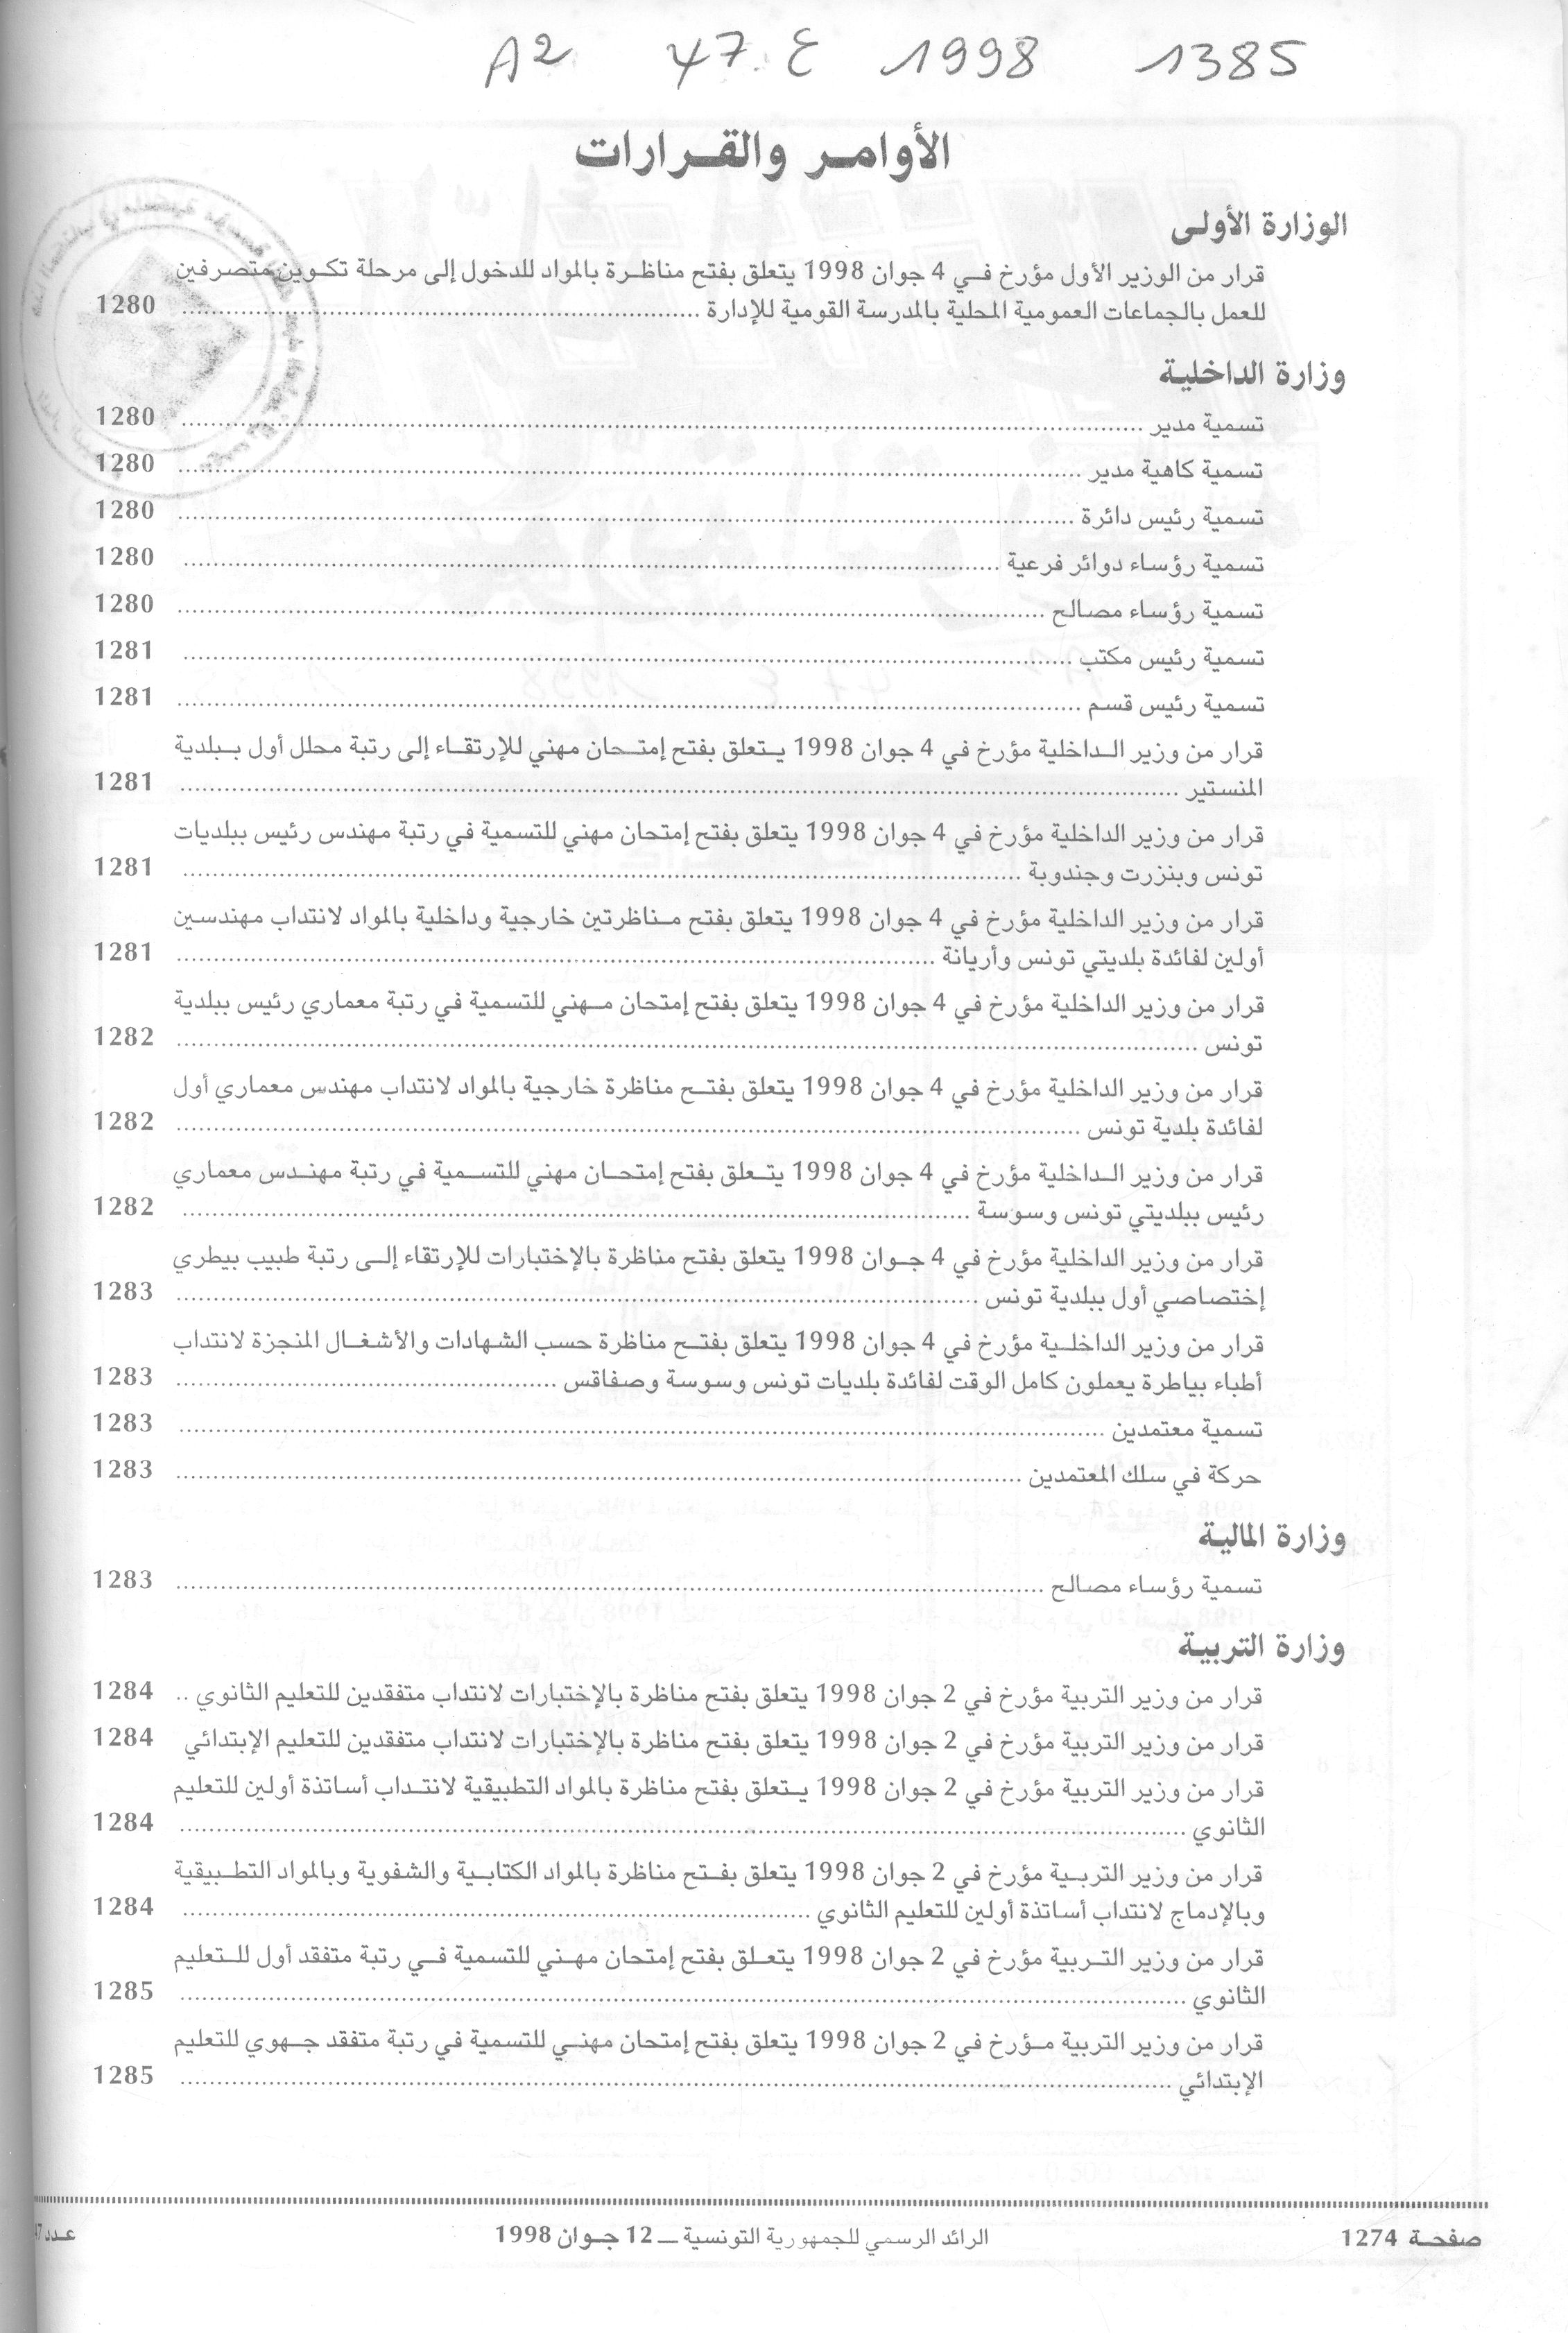 A2 47.ع 1998 1385
الأوامر والقرارات
الوزارة الأولى
قرار من الوزير الأول مؤرخ في 4 جوان 1998 يتعلق بفتح مناظرة بالمواد للدخول إلى مرحلة تكوين متصرفين
للعمل بالجماعات العمومية المحلية بالمدرسة القومية للإدارة ........ 1280
وزارة الداخلية
تسمية مدير ........ 1280
تسمية كاهية مدير ........ 1280
تسمية رئيس دائرة ........ 1280
تسمية رؤساء دوائر فرعية ........ 1280
تسمية رؤساء مصالح ........ 1280
تسمية رئيس مكتب ........ 1281
تسمية رئيس قسم ........ 1281
قرار من وزير الداخلية مؤرخ في 4 جوان 1998 يتعلق بفتح إمتحان مهني للإرتقاء إلى رتبة محلل أول ببلدية
المنستير ........ 1281
قرار من وزير الداخلية مؤرخ في 4 جوان 1998 يتعلق بفتح إمتحان مهني للتسمية في رتبة مهندس رئيس ببلديات
تونس وبنزرت وجندوبة ........ 1281
قرار من وزير الداخلية مؤرخ في 4 جوان 1998 يتعلق بفتح مناظرتين خارجية وداخلية بالمواد لانتداب مهندسين
أولين لفائدة بلديتي تونس وأريانة ........ 1281
قرار من وزير الداخلية مؤرخ في 4 جوان 1998 يتعلق بفتح إمتحان مهني للتسمية في رتبة معماري رئيس ببلدية
تونس ........ 1282
قرار من وزير الداخلية مؤرخ في 4 جوان 1998 يتعلق بفتح مناظرة خارجية بالمواد لانتداب مهندس معماري أول
لفائدة بلدية تونس ........ 1282
قرار من وزير الداخلية مؤرخ في 4 جوان 1998 يتعلق بفتح إمتحان مهني للتسمية في رتبة مهندس معماري
رئيس ببلديتي تونس وسوسة ........ 1282
قرار من وزير الداخلية مؤرخ في 4 جوان 1998 يتعلق بفتح مناظرة بالإختبارات للإرتقاء إلى رتبة طبيب بيطري
إختصاصي أول ببلدية تونس ........ 1283
قرار من وزير الداخلية مؤرخ في 4 جوان 1998 يتعلق بفتح مناظرة حسب الشهادات والأشغال المنجزة لانتداب
أطباء بياطرة يعملون كامل الوقت لفائدة بلديات تونس وسوسة وصفاقس ........ 1283
تسمية معتمدين ........ 1283
حركة في سلك المعتمدين ........ 1283
وزارة المالية
تسمية رؤساء مصالح ........ 1283
وزارة التربية
قرار من وزير التربية مؤرخ في 2 جوان 1998 يتعلق بفتح مناظرة بالإختبارات لانتداب متفقدين للتعليم الثانوي .. 1284
قرار من وزير التربية مؤرخ في 2 جوان 1998 يتعلق بفتح مناظرة بالإختبارات لانتداب متفقدين للتعليم الإبتدائي 1284
قرار من وزير التربية مؤرخ في 2 جوان 1998 يتعلق بفتح مناظرة بالمواد التطبيقية لانتداب أساتذة أولين للتعليم
الثانوي ........ 1284
قرار من وزير التربية مؤرخ في 2 جوان 1998 يتعلق بفتح مناظرة بالمواد الكتابية والشفوية وبالمواد التطبيقية
وبالإدماج لانتداب أساتذة أولين للتعليم الثانوي ........ 1284
قرار من وزير التربية مؤرخ في 2 جوان 1998 يتعلق بفتح إمتحان مهني للتسمية في رتبة متفقد أول للتعليم
الثانوي ........ 1285
قرار من وزير التربية مؤرخ في 2 جوان 1998 يتعلق بفتح إمتحان مهني للتسمية في رتبة متفقد جهوي للتعليم
الإبتدائي ........ 1285
صفحة 1274 الرائد الرسمي للجمهورية التونسية ـ 12 جوان 1998 عدد 47